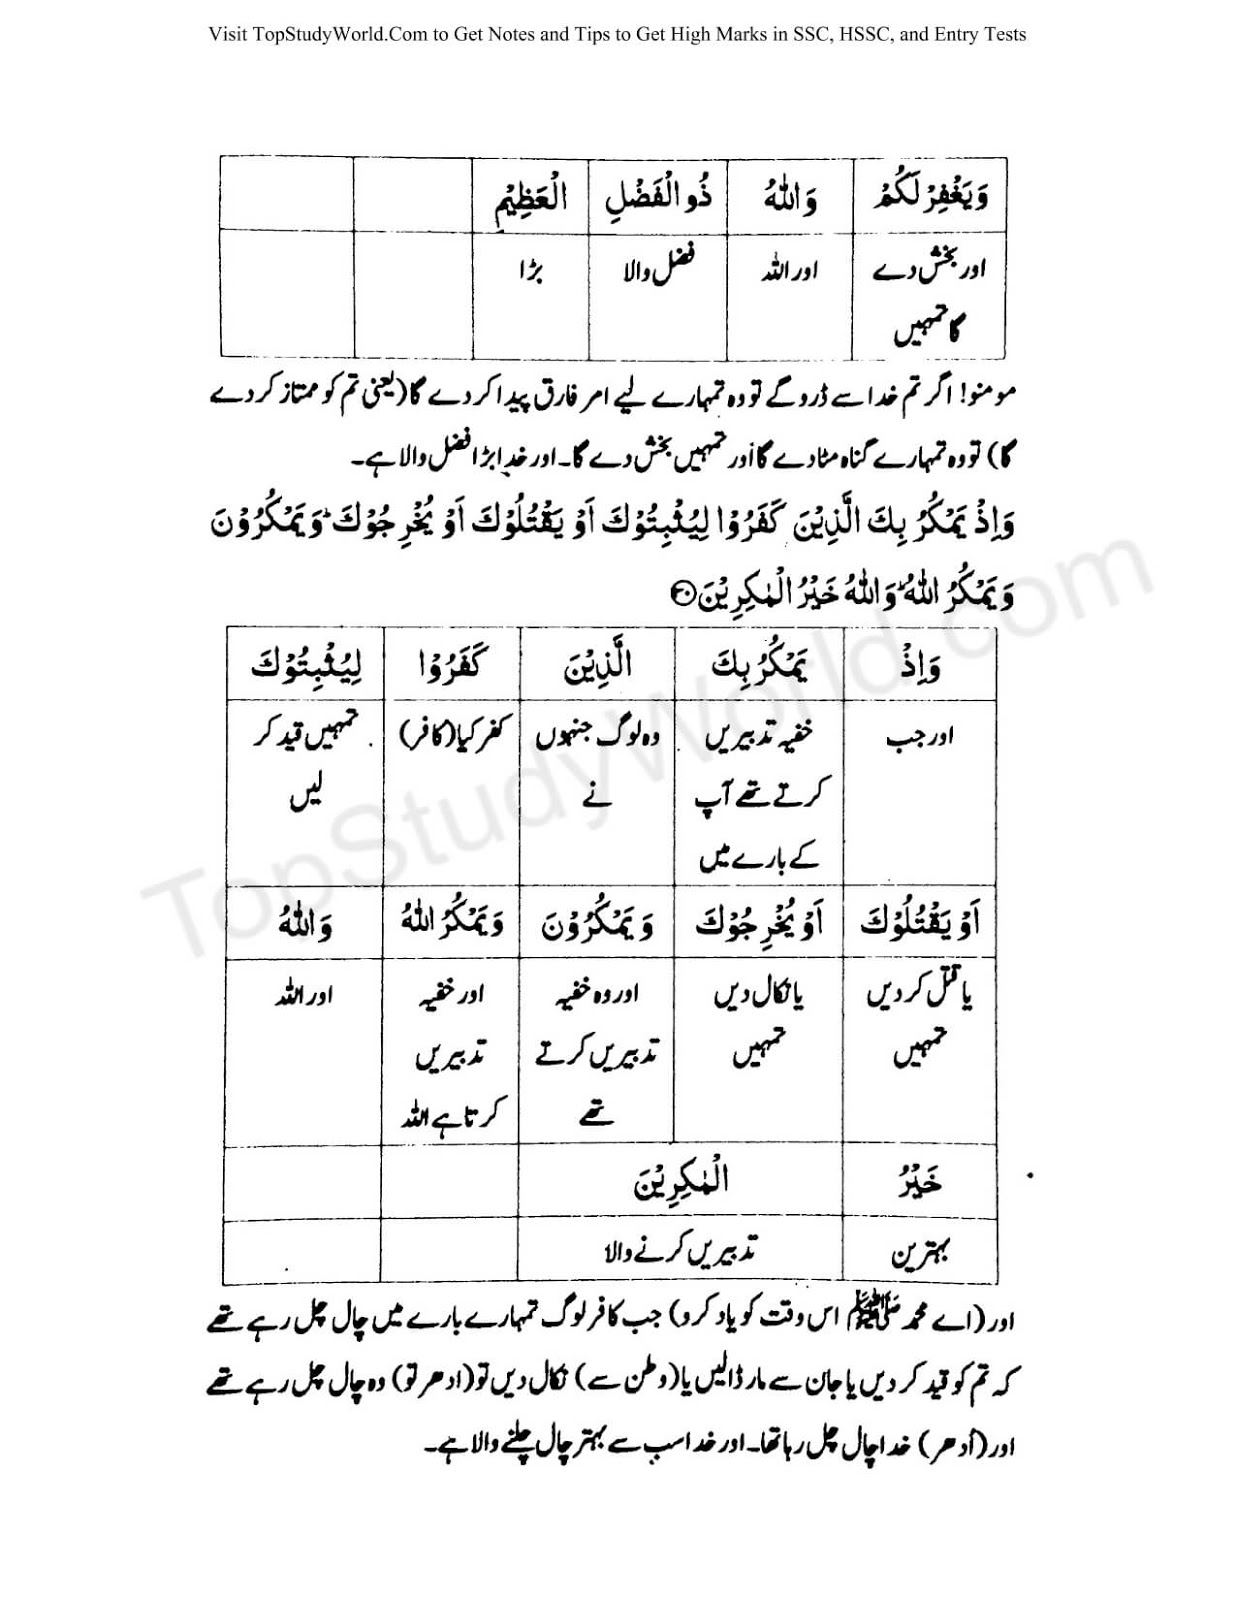 Visit TopStudyWorld.Com to Get Notes and Tips to Get High Marks in SSC, HSSC, and Entry Tests
وَيَغْفِرْ لَكُمْ وَاللّٰهُ ذُو الْفَضْلِ الْعَظِيْمِ
اور بخش دے اور اللہ فضل والا بڑا
گا تمہیں
مومنو! اگر تم خدا سے ڈرو گے تو وہ تمہارے لیے امر فارق پیدا کر دے گا (یعنی تم کو ممتاز کر دے
گا) تو وہ تمہارے گناہ مٹا دے گا اور تمہیں بخش دے گا۔ اور خدا بڑا فضل والا ہے۔
وَاِذْ يَمْكُرُ بِكَ الَّذِيْنَ كَفَرُوْا لِيُثْبِتُوْكَ اَوْ يَقْتُلُوْكَ اَوْ يُخْرِجُوْكَ ؕ وَيَمْكُرُوْنَ
وَيَمْكُرُ اللّٰهُ ؕ وَاللّٰهُ خَيْرُ الْمٰكِرِيْنَ ۳۰
وَاِذْ يَمْكُرُ بِكَ الَّذِيْنَ كَفَرُوْا لِيُثْبِتُوْكَ
اور جب خفیہ تدبیریں وہ لوگ جنہوں کفر کیا (کافر) تمہیں قید کر
کرتے تھے آپ نے لیں
کے بارے میں
اَوْ يَقْتُلُوْكَ اَوْ يُخْرِجُوْكَ وَيَمْكُرُوْنَ وَيَمْكُرُ اللّٰهُ وَاللّٰهُ
یا قتل کر دیں یا نکال دیں اور وہ خفیہ اور خفیہ اور اللہ
تمہیں تمہیں تدبیریں کرتے تدبیریں
تھے کرتا ہے اللہ
خَيْرُ الْمٰكِرِيْنَ
بہترین تدبیریں کرنے والا
اور (اے محمد ﷺ اس وقت کو یاد کرو) جب کافر لوگ تمہارے بارے میں چال چل رہے تھے
کہ تم کو قید کر دیں یا جان سے مار ڈالیں یا (وطن سے) نکال دیں تو (ادھر تو) وہ چال چل رہے تھے
اور (اُدھر) خدا چال چل رہا تھا۔ اور خدا سب سے بہتر چال چلنے والا ہے۔
TopStudyWorld.com